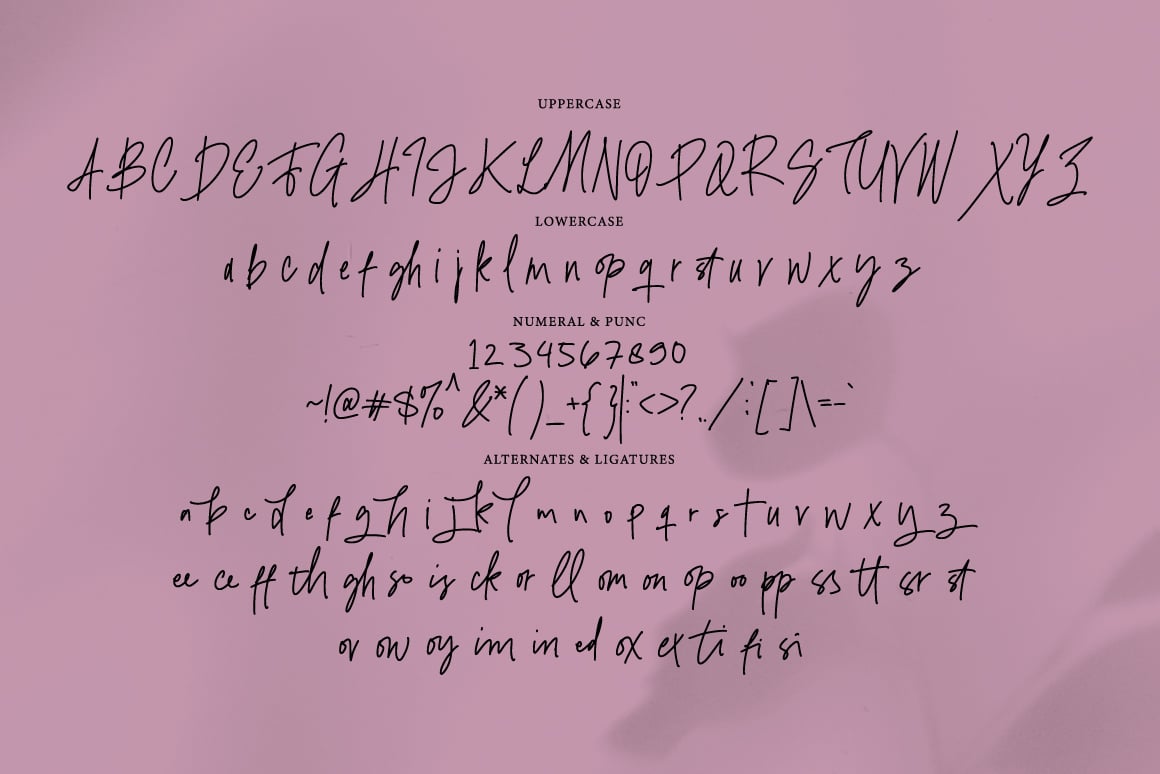 UPPERCASE
A B C D E F G H I J K L M N O P Q R S T U V W X Y Z
LOWERCASE
a b c d e f g h i j k l m n o p q r s t u v w x y z
NUMERAL & PUNC
1 2 3 4 5 6 7 8 9 0
~!@#$%^&*()_+{}|:"<>?.,/;'[]\=-`
ALTERNATES & LIGATURES
a b c d e f g h i j k l m n o p q r s t u v w x y z
ee ce ff th gh so is ck or ll om on op oo pp ss tt sr st
ov ow oy im in ed ox ex ti fi si